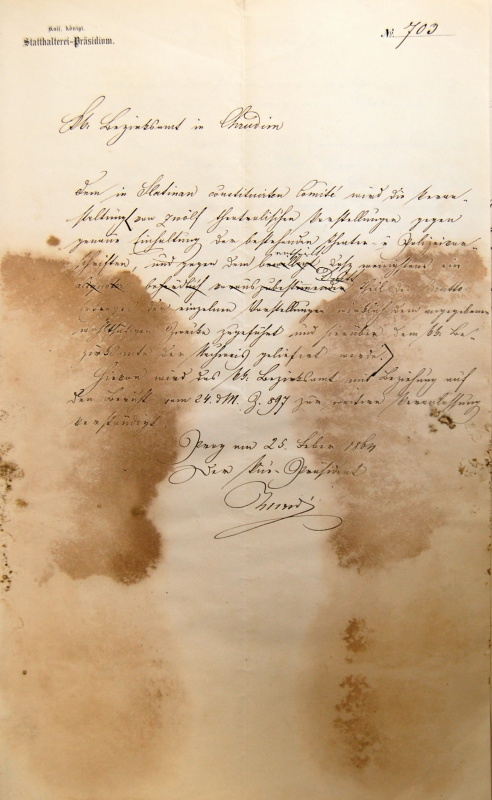 Kais. königl.
Statthalterei-Präsidium.
№ 703
Bezirksamt in Chrudim
Dem in Slatinan constituirten Comité wird die Veran-
staltung von zwölf theatralischen Vorstellungen gegen
genaue Einhaltung der bestehenden Theater- u Polizeivor-
schriften, und gegen dem
Theil der Brutto
der einzelnen Vorstellungen dem angegebenen
Zwecke zugeführt und hierüber dem kk. Be-
zirksamte der Nachweis geliefert werde.
Hievon wird das kk. Bezirksamt mit Beziehung auf
den Bericht vom 24. d.M. Z. 897 zur weitern Veranlassung
verständigt
Prag am 25. 1864
Der Vice-Präsident